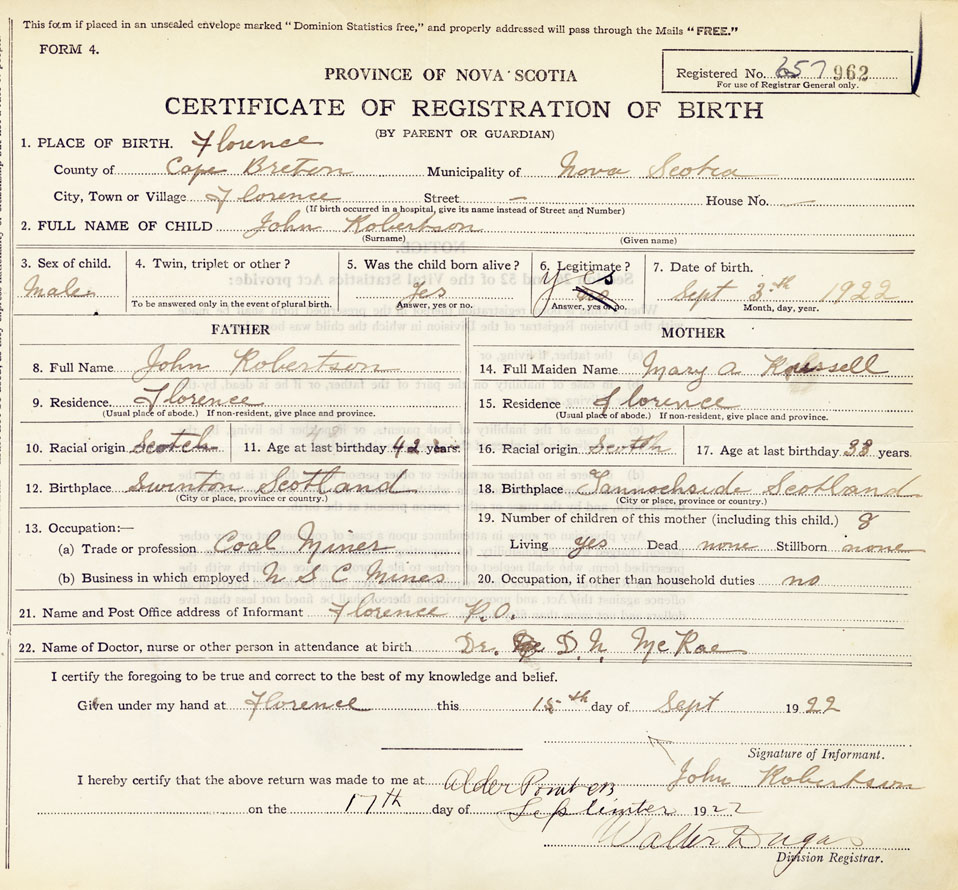 This form if placed in an unsealed envelope marked "Dominion Statistics free," and properly addressed will pass through the Mails "FREE."
FORM 4.
Registered No. 657 962
For use of Registrar General only.
PROVINCE OF NOVA SCOTIA
CERTIFICATE OF REGISTRATION OF BIRTH
(BY PARENT OR GUARDIAN)
1. PLACE OF BIRTH. Florence
County of Cape Breton Municipality of Nova Scotia
City, Town or Village Florence Street — House No. —
(If birth occurred in a hospital, give its name instead of Street and Number)
2. FULL NAME OF CHILD John Robertson
(Surname) (Given name)
3. Sex of child. 4. Twin, triplet or other? 5. Was the child born alive? 6. Legitimate? 7. Date of birth.
Male Yes Yes Sept 3th 1922
To be answered only in the event of plural birth. Answer, yes or no. Answer, yes or no. Month, day, year.
FATHER
8. Full Name John Robertson
9. Residence. Florence
(Usual place of abode.) If non-resident, give place and province.
10. Racial origin Scotch 11. Age at last birthday 42 years.
12. Birthplace Swinton Scotland
(City or place, province or country.)
13. Occupation:—
(a) Trade or profession Coal Miner
(b) Business in which employed N S C Mines
MOTHER
14. Full Maiden Name Mary A Russell
15. Residence Florence
(Usual place of abode.) If non-resident, give place and province.
16. Racial origin Scotch 17. Age at last birthday 33 years.
18. Birthplace Tannochside Scotland
(City or place, province or country.)
19. Number of children of this mother (including this child.) 8
Living yes Dead none Stillborn none
20. Occupation, if other than household duties no
21. Name and Post Office address of Informant Florence P.O.
22. Name of Doctor, nurse or other person in attendance at birth Dr. D. N. McRae
I certify the foregoing to be true and correct to the best of my knowledge and belief.
Given under my hand at Florence this 15th day of Sept 1922
Signature of Informant.
John Robertson
I hereby certify that the above return was made to me at Alder Point CB
on the 17th day of September 1922
Walter Dugas
Division Registrar.